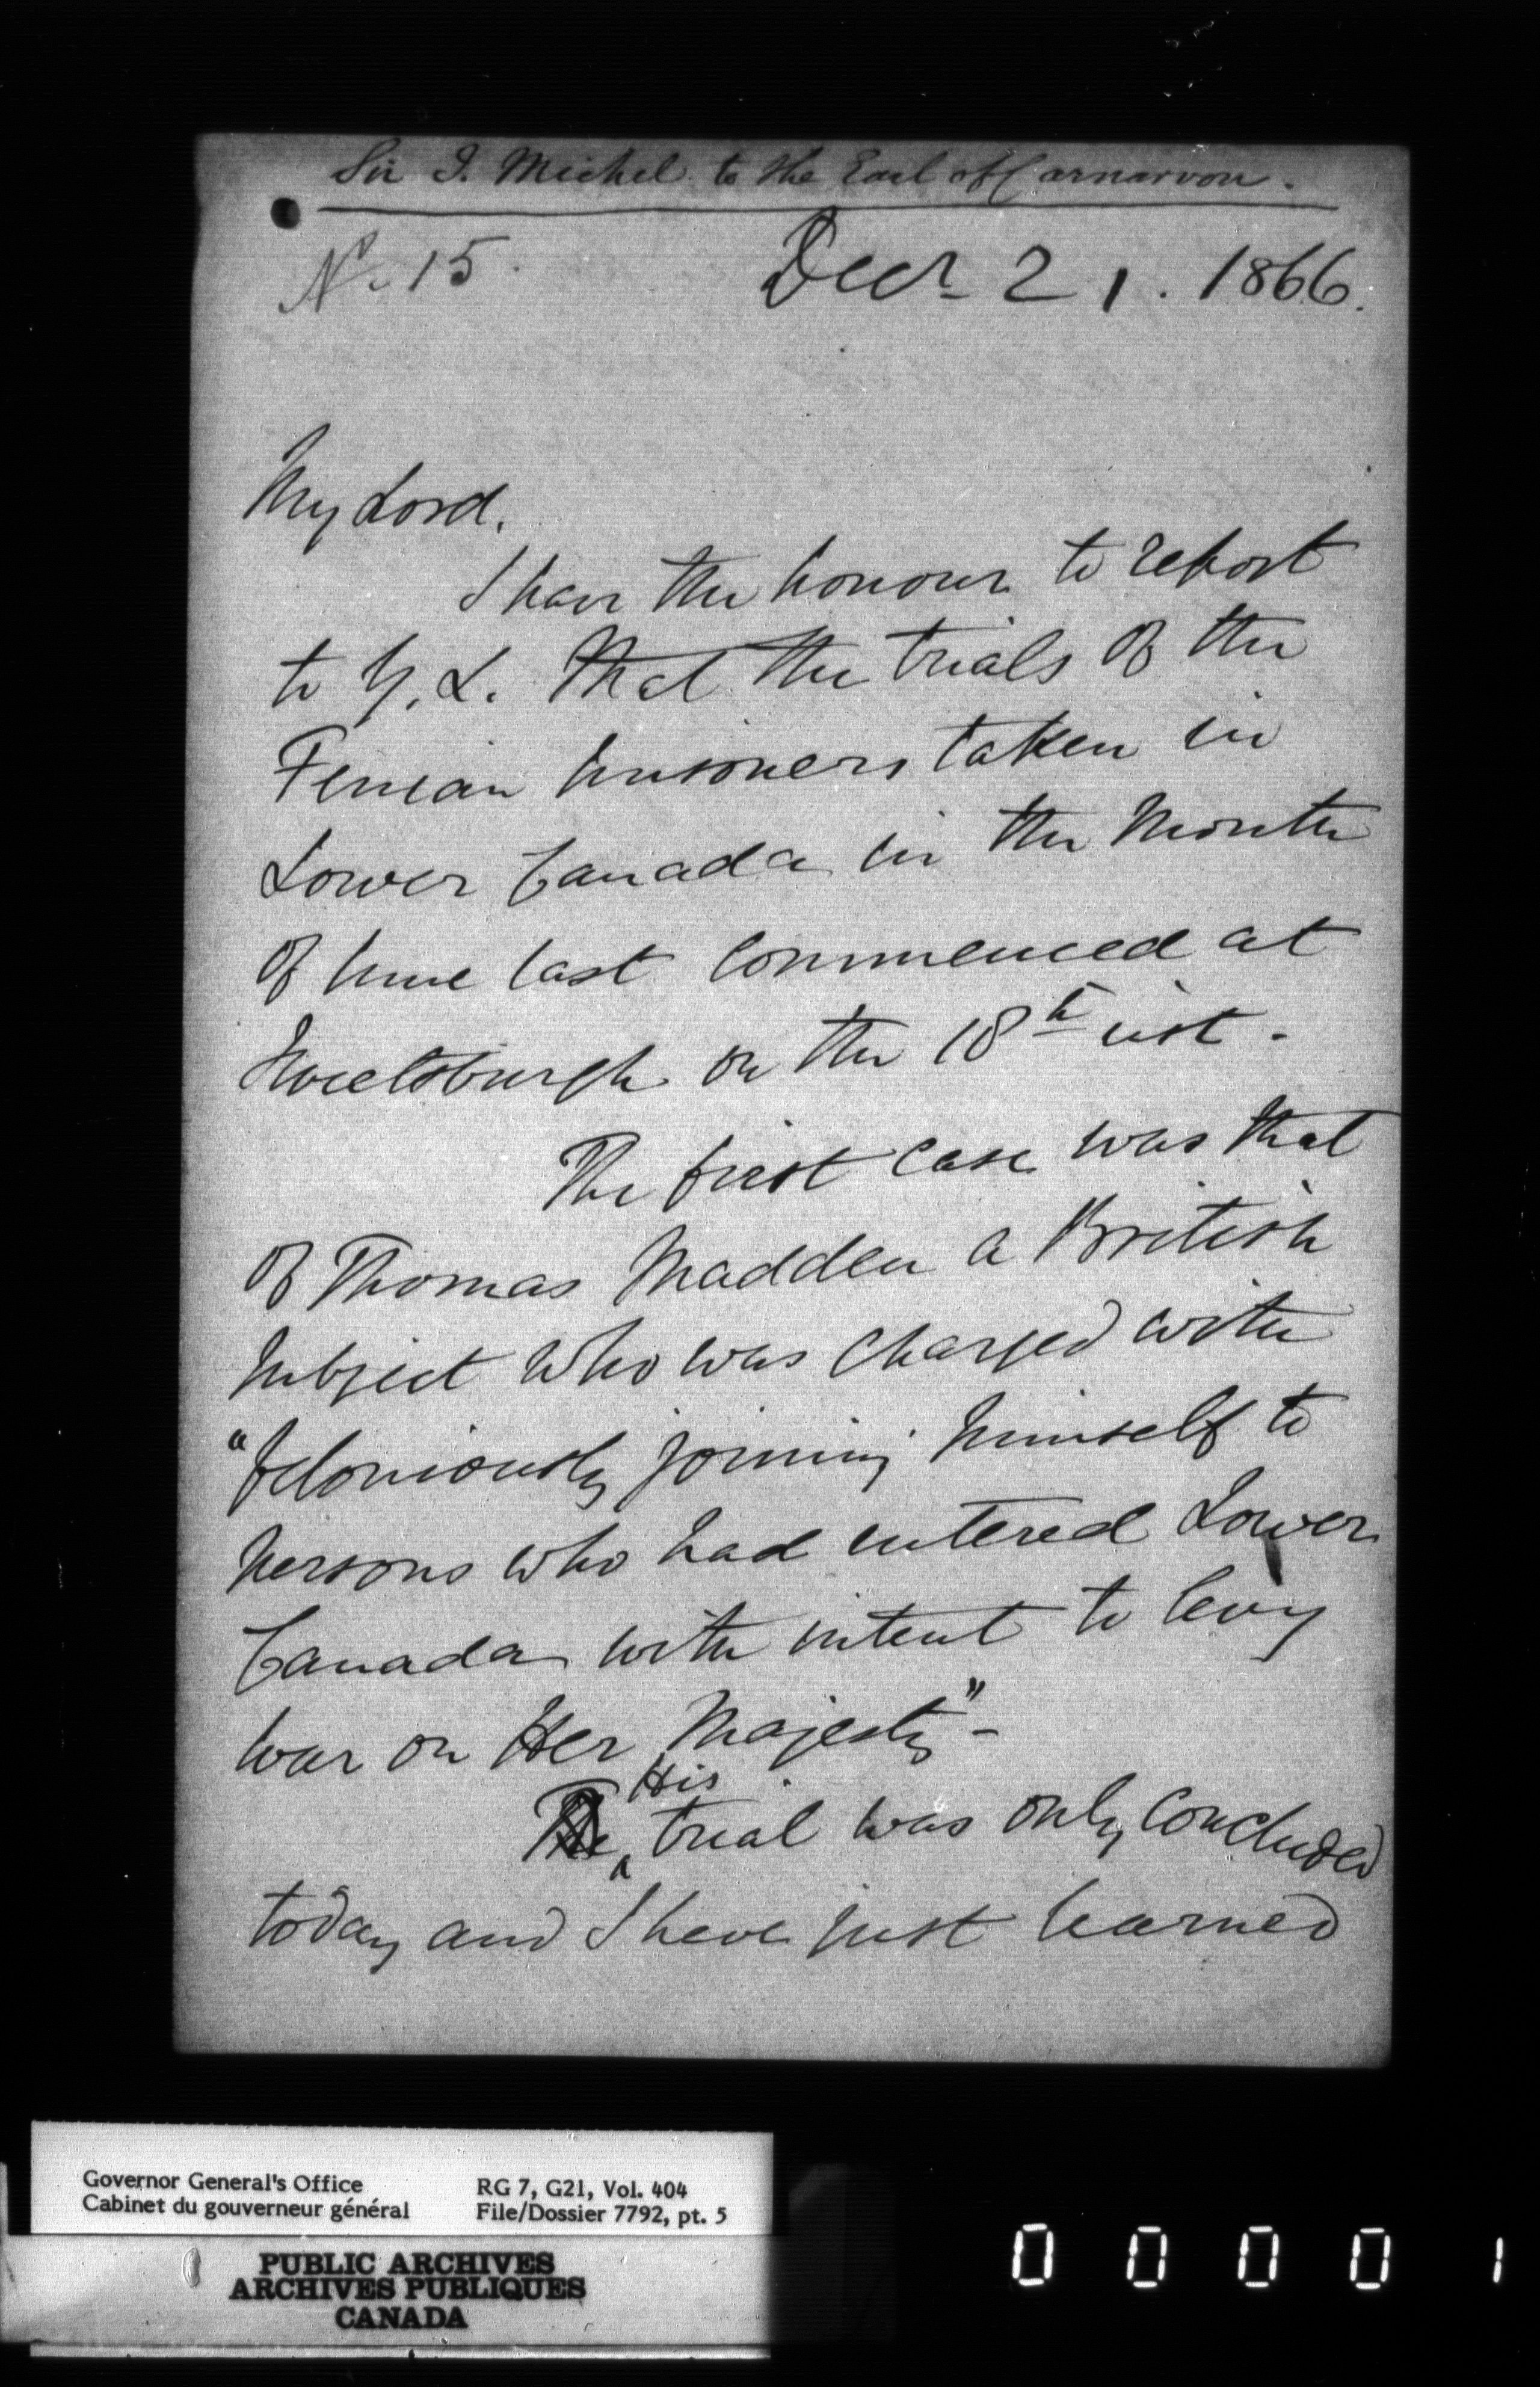 Sir J. Michel to the Earl of Carnarvon.
No. 15. Decr 21. 1866.
My Lord.
I have the honour to report
to Y. L. that the trials of the
Fenian prisoners taken in
Lower Canada in the Month
of June last commenced at
Sweetsburgh on the 18th inst.
The first case was that
of Thomas Madden a British
subject who was charged with
"feloniously joining himself to
persons who had entered Lower
Canada with intent to levy
war on Her Majesty" -
His
The trial was only concluded
today and I have just learned
Governor General's Office
Cabinet du gouverneur général
RG 7, G21, Vol. 404
File/Dossier 7792, pt. 5
PUBLIC ARCHIVES
ARCHIVES PUBLIQUES
CANADA
0 0 0 0 1